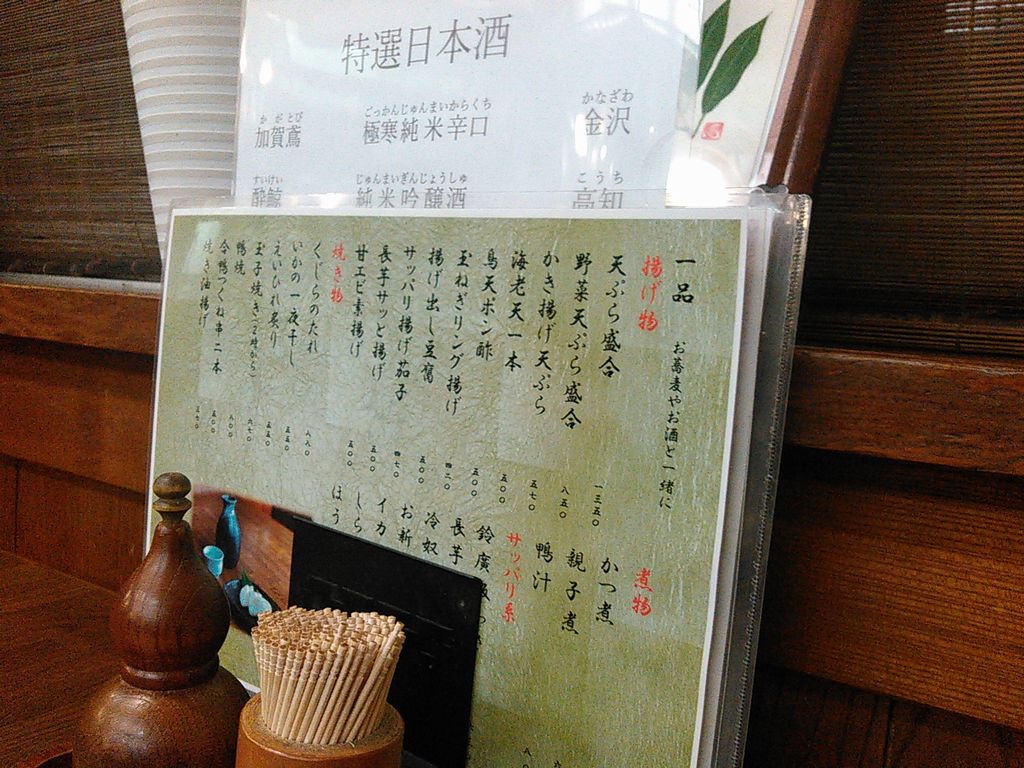 特選日本酒
かがとび
加賀鳶
ごっかんじゅんまいからくち
極寒純米辛口
かなざわ
金沢
すいげい
酔鯨
じゅんまいぎんじょうしゅ
純米吟醸酒
こうち
高知
一品 お蕎麦やお酒と一緒に
揚げ物
天ぷら盛合 一三五〇
野菜天ぷら盛合 八五〇
かき揚げ天ぷら 五七〇
海老天一本 五〇〇
鳥天ポン酢 五〇〇
玉ねぎリング揚げ 四二〇
揚げ出し豆腐 五〇〇
サッパリ揚げ茄子 四七〇
長芋サッと揚げ 五〇〇
甘エビ素揚げ 五〇〇
焼き物
くじらのたれ 八八〇
いかの一夜干し 五五〇
えいひれ炙り 五五〇
玉子焼き(2時から) 六七〇
鴨焼 八〇〇
合鴨つくね串二本 五〇〇
焼き油揚げ 三七〇
煮物
かつ煮
親子煮
鴨汁
サッパリ系
鈴廣
長芋
冷奴
お新
イカ
しら
ほう